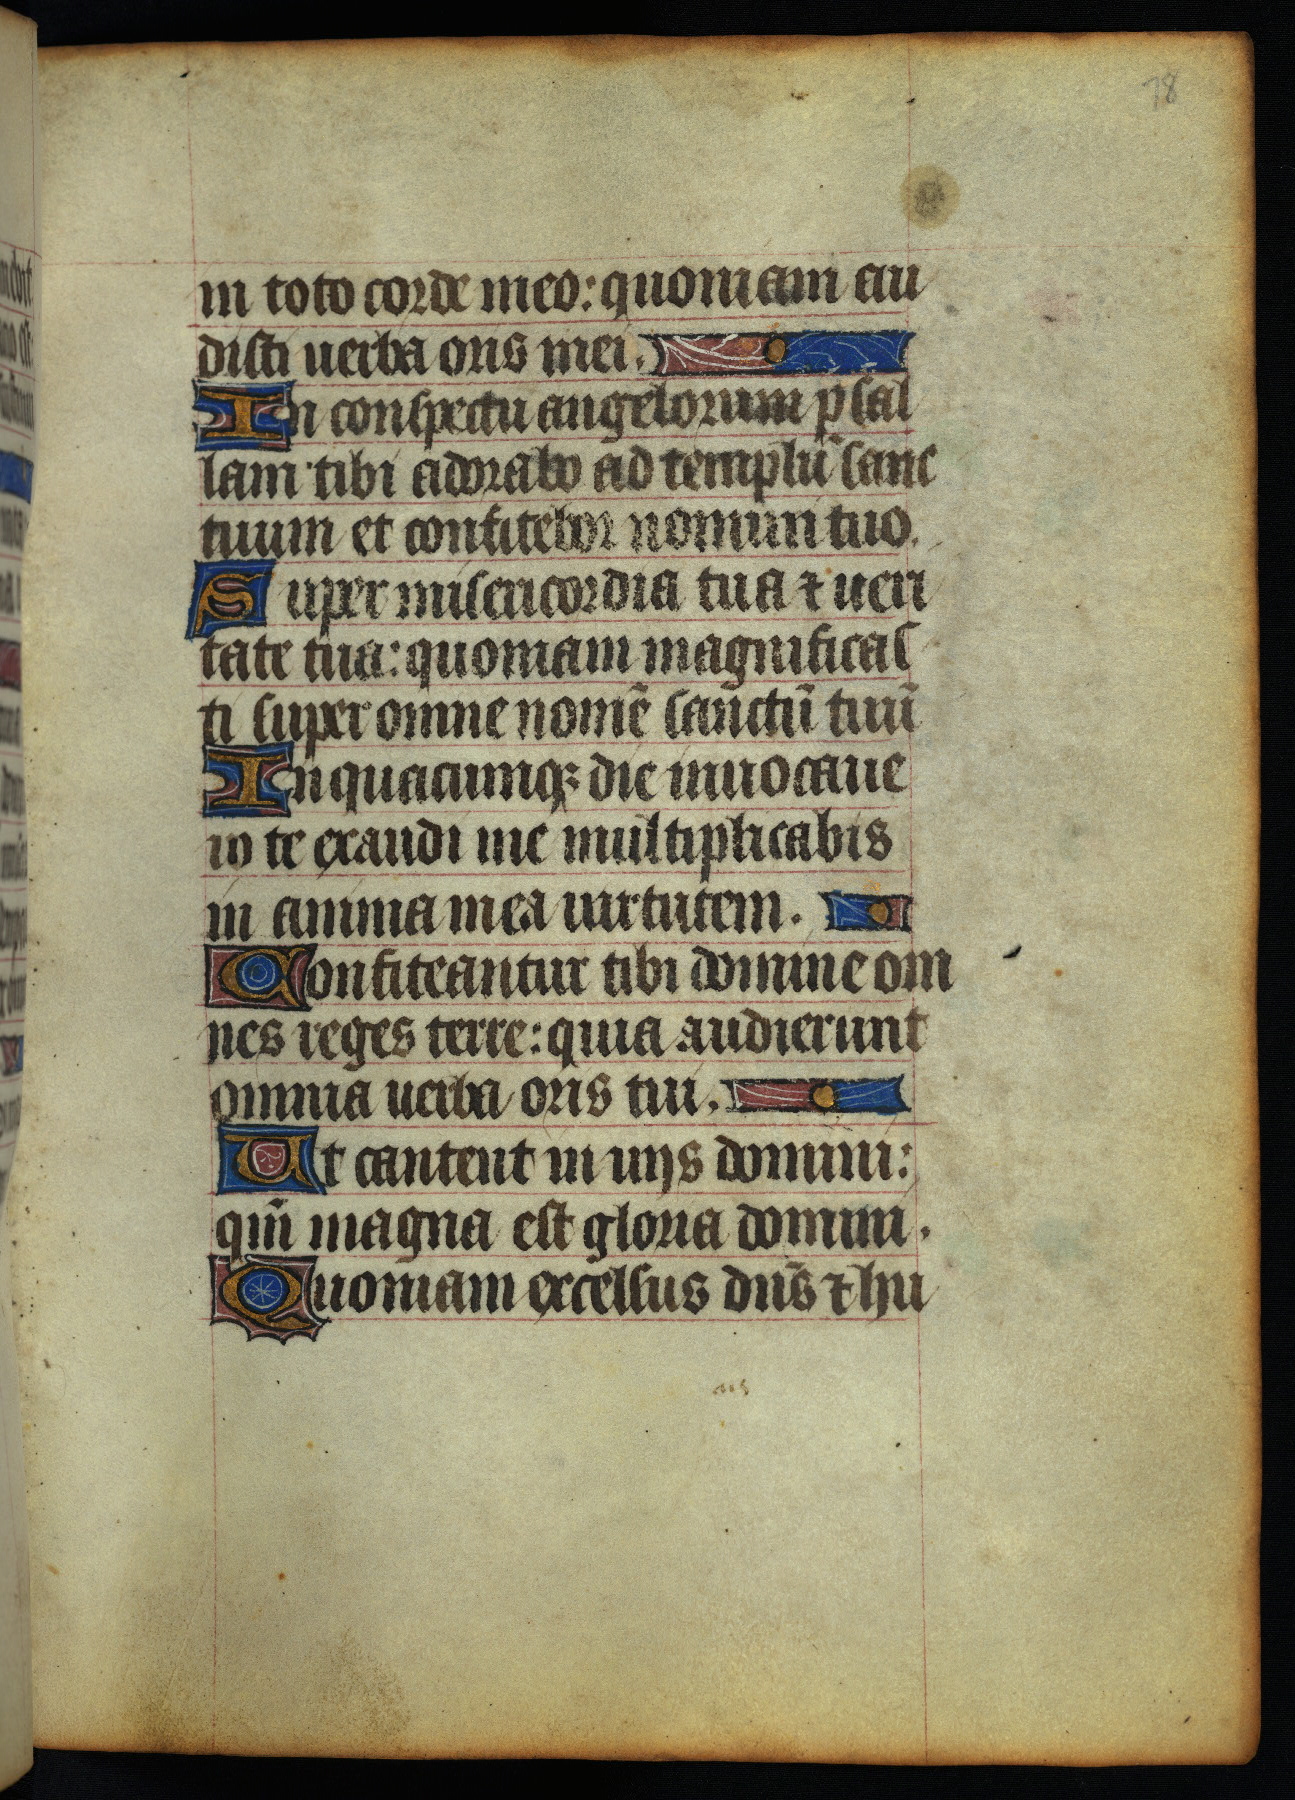 78
in toto corde meo: quoniam au
disti uerba oris mei.
In conspectu angelorum psal
lam tibi adorabo ad templū sanc
tuum et confitebor nomini tuo.
Super misericordia tua ⁊ ueri
tate tua: quoniam magnificas
ti super omne nomē sanctū tuū
In quacumqꝫ die inuocaue
ro te exaudi me multiplicabis
in anima mea uirtutem.
Confiteantur tibi domine om
nes reges terre: quia audierunt
omnia uerba oris tui.
Ut cantent in uijs domini:
qm̄ magna est gloria domini.
Quoniam excelsus dn̄s ⁊ hu